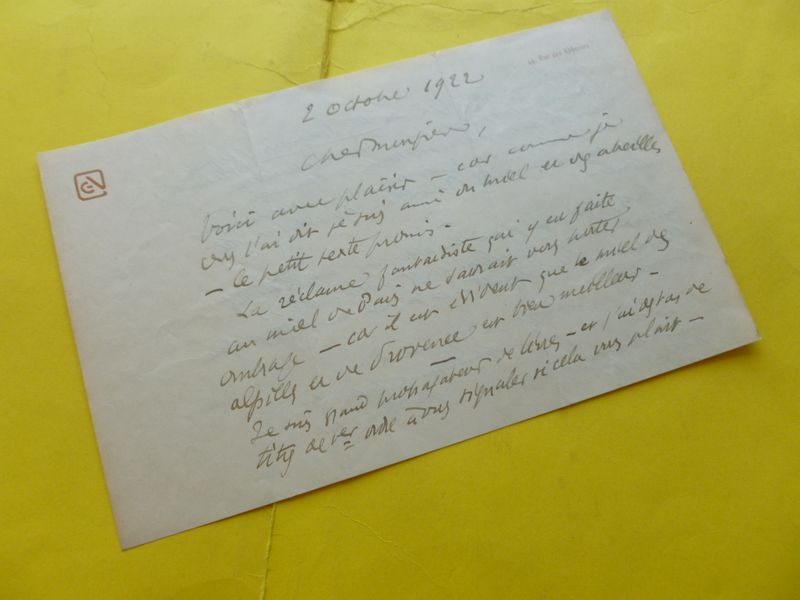 2 octobre 1922
cher monsieur,
Voici avec plaisir – car comme je
vous l'ai dit je suis ami du miel et des abeilles
– le petit texte promis.
La réclame fantaisiste que j'y ai faite
au miel de Paris ne saurait vous porter
ombrage – car il est évident que le miel des
alpilles et de Provence est bien meilleur –
Je suis grand propagateur de livres – et j'ai des tas de
titres de 1er ordre à vous signaler si cela vous plait –